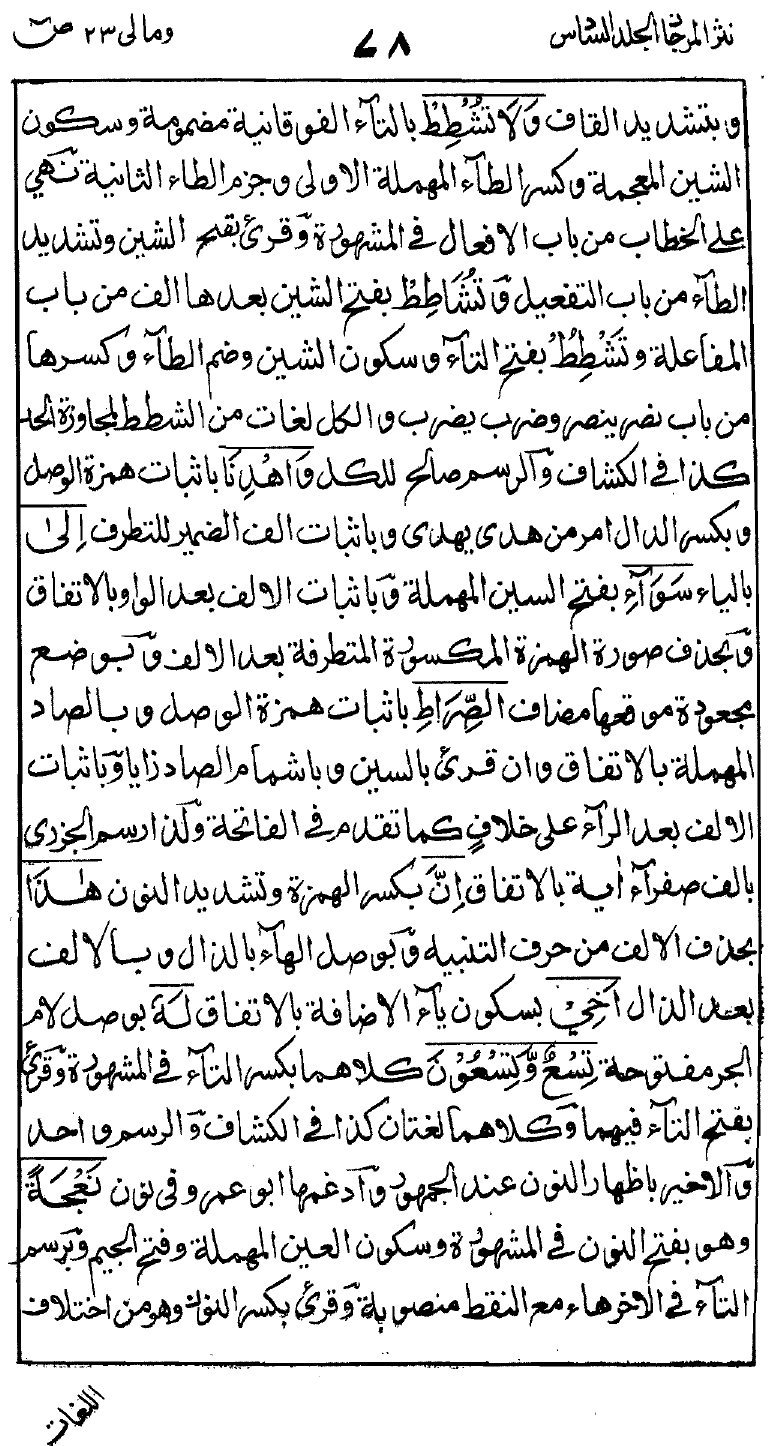 نثر المرجان المجلد السادس ٧٨ ومالى ٢٣ ص
وبتشديد القاف وَلَا تُشْطِطْ بالتآء الفوقانية مضمومة وسكون
الشين المعجمة وكسر الطآء المهملة الاولى وجزم الطاء الثانية نهي
على الخطاب من باب الافعال في المشهورة وقرئ بفتح الشين وتشديد
الطآء من باب التفعيل وَتُشَاطِطْ بفتح الشين بعدها الف من باب
المفاعلة وتَشْطِطُ بفتح التآء وسكون الشين وضم الطآء وكسرها
من باب نصر ينصر وضرب يضرب والكل لغات من الشطط لمجاوزة الحد
كذا في الكشاف والرسم صالح للكل وَاهْدِنَا باثبات همزة الوصل
وبكسر الدال امر من هدى يهدى وباثبات الف الضمير للتطرف إِلىٰ
بالياء سَوَآءِ بفتح السين المهملة وباثبات الالف بعد الواو بالاتفاق
وبحذف صورة الهمزة المكسورة المتطرفة بعد الالف وبوضع
مجعودة موقعها مضاف الصِّرَاطِ باثبات همزة الوصل وبالصاد
المهملة بالاتفاق وان قرئ بالسين وباشمام الصاد زايا وباثبات
الالف بعد الرآء على خلافٍ كما تقدم في الفاتحة وكذا رسم الجزرى
بالف صفرآء اٰية بالاتفاق اِنَّ بكسر الهمزة وتشديد النون هٰذَا
بحذف الالف من حرف التنبيه وبوصل الهآء بالذال وبالالف
بعد الذال اَخِيْ بسكون يآء الاضافة بالاتفاق لَهٗ بوصل لام
الجر مفتوحة تِسْعٌ وَّتِسْعُوْنَ كلاهما بكسر التآء في المشهورة وقرئ
بفتح التآء فيهما وكلاهما لغتان كذا في الكشاف والرسم واحد
والاخير باظهار النون عند الجمهور وادغمها ابو عمرو في نون نَعْجَةً
وهو بفتح النون في المشهورة وسكون العين المهملة وفتح الجيم وبرسم
التآء في الاخر هاء مع النقط منصوبة وقرئ بكسر النون وهو من اختلاف
اللغات